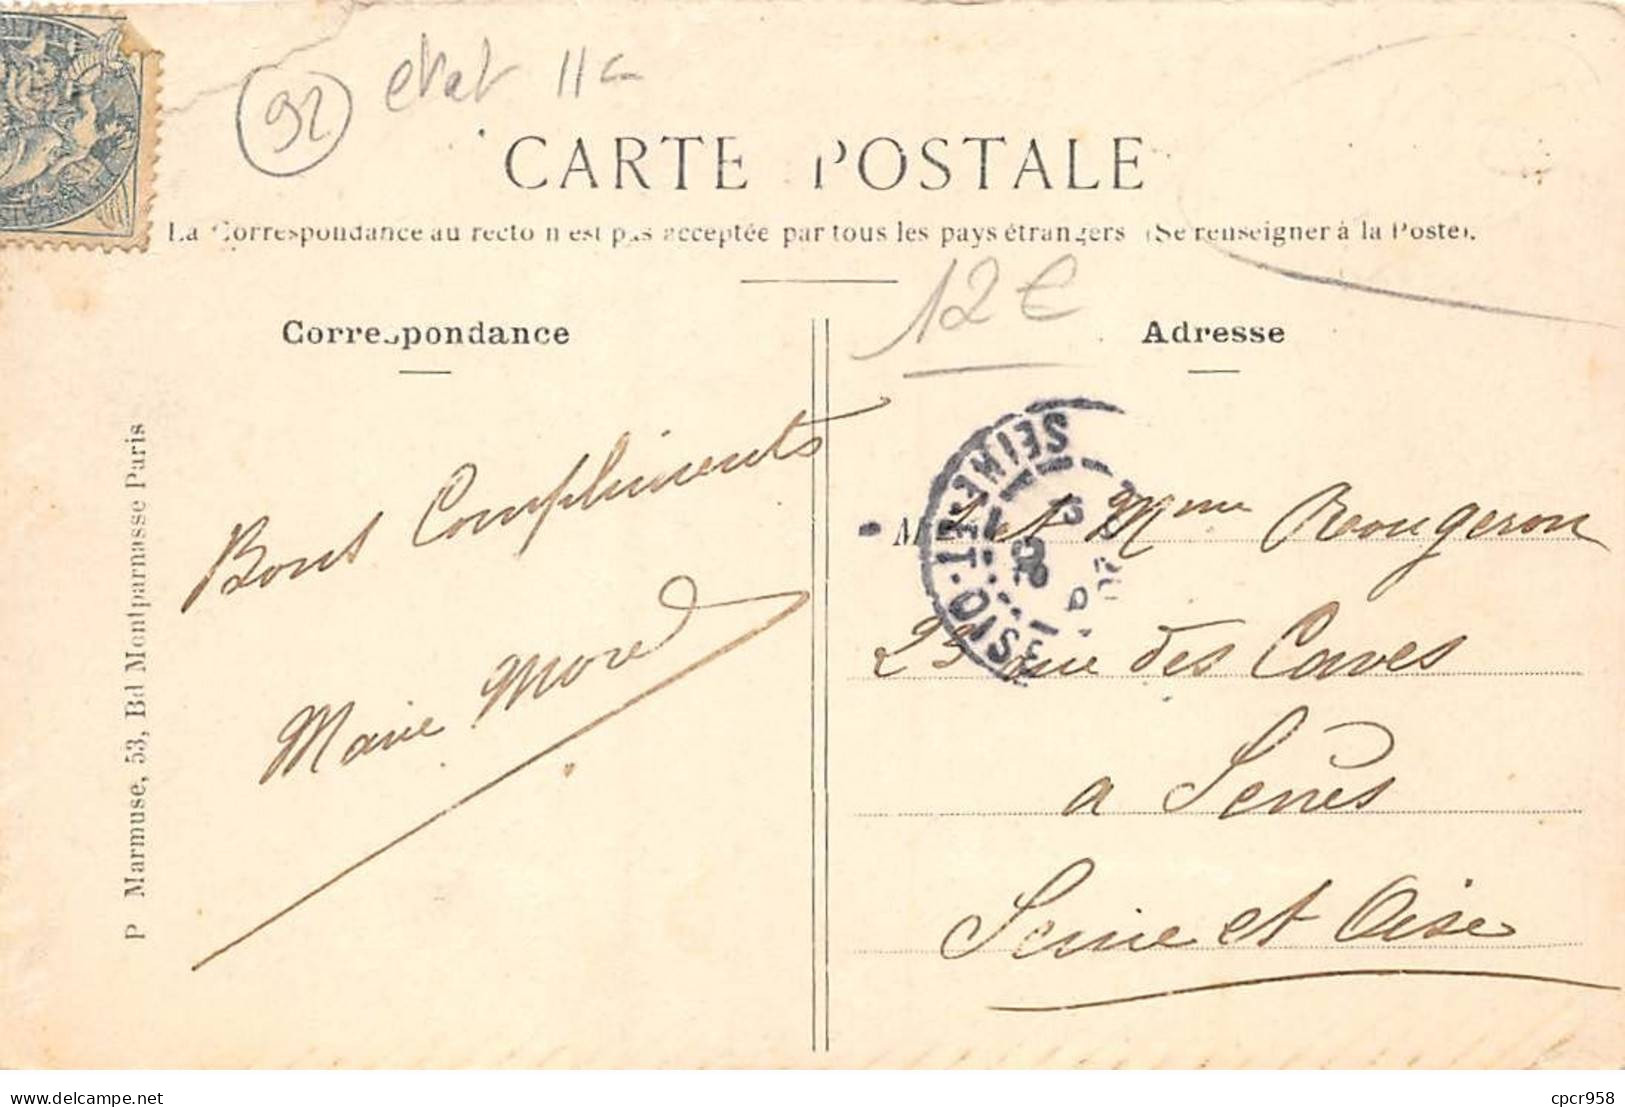 92
etat
11c
CARTE POSTALE
La Correspondance au recto n'est pas acceptée par tous les pays étrangers (Se renseigner à la Poste).
12€
Correspondance
Adresse
Bons Compliments
Marie Morel
P Marmuse, 53, Bd Montparnasse Paris
SEINE-ET-OISE
M et Mme Rougeron
23 rue des Caves
a Sèvres
Seine et Oise
delcampe.net
cpcr958